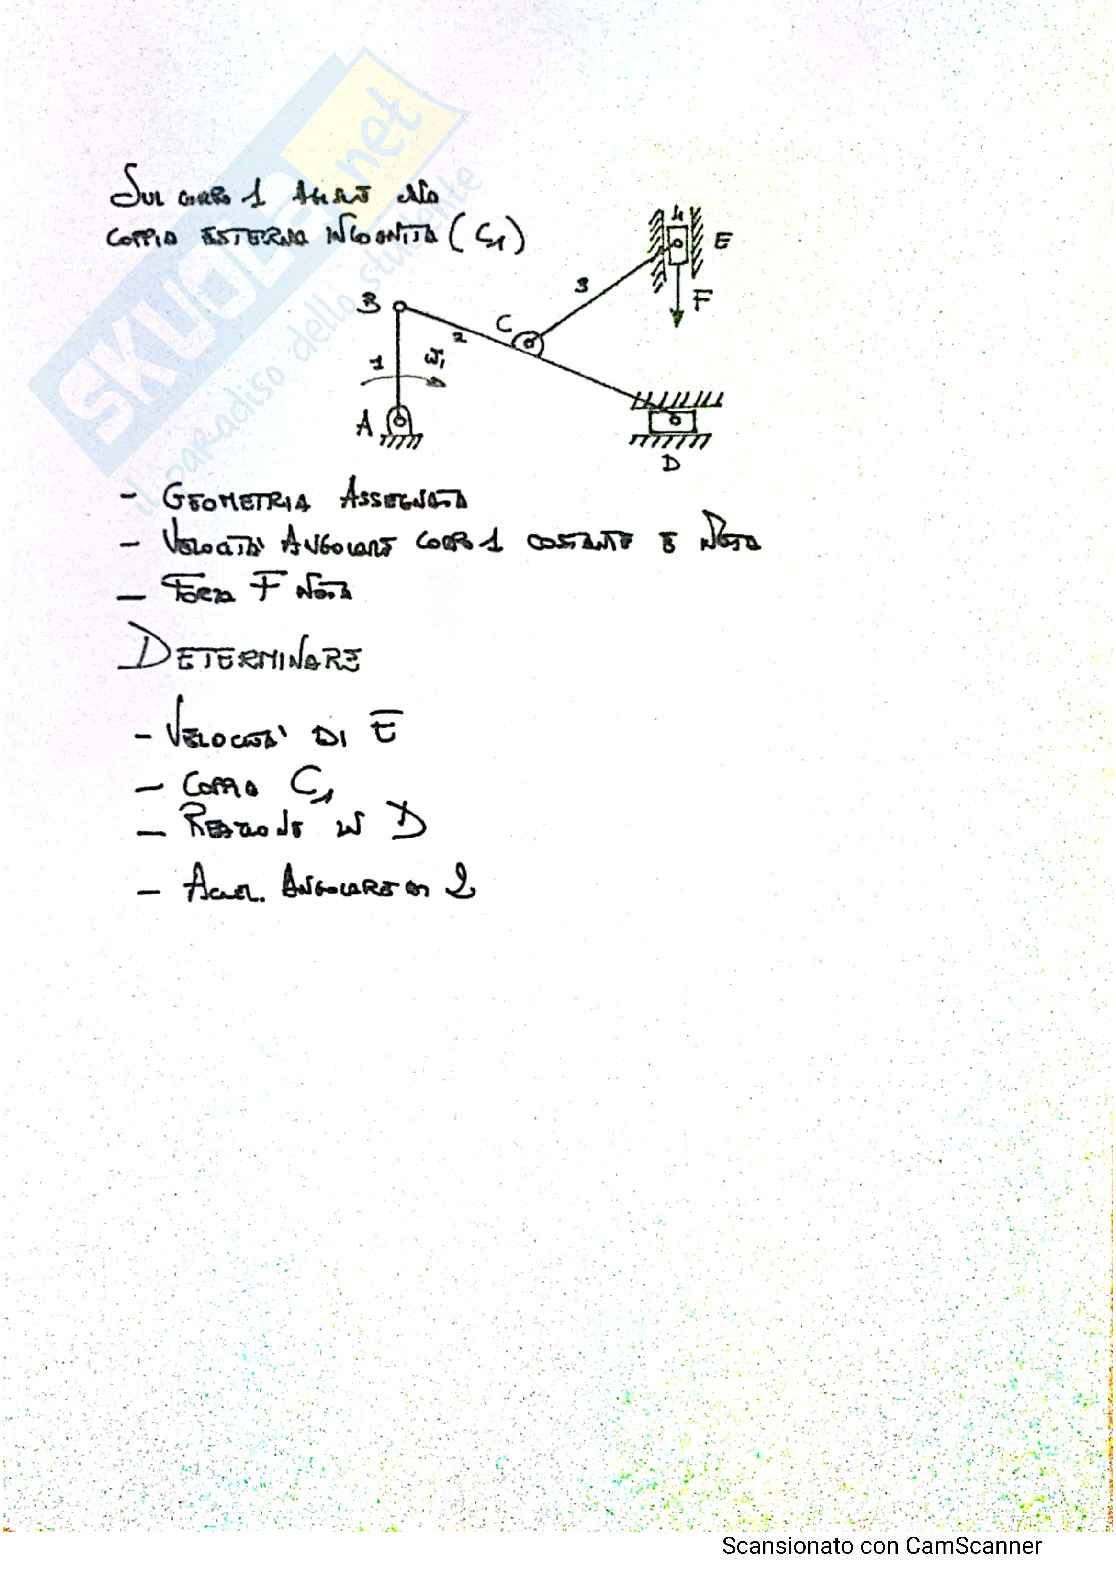 SUL CORPO 1 AGISCE UNA
COPPIA ESTERNA INCOGNITA (C1)
4
E
3
F
B
C
2
1
ω1
A
D
- GEOMETRIA ASSEGNATA
- VELOCITA' ANGOLARE CORPO 1 COSTANTE E NOTA
- FORZA F NOTA
DETERMINARE
- VELOCITA' DI E
- COPPIA C1
- REAZIONE IN D
- ACCEL. ANGOLARE DI 2
SKUOLA.net
il paradiso dello studente
Scansionato con CamScanner